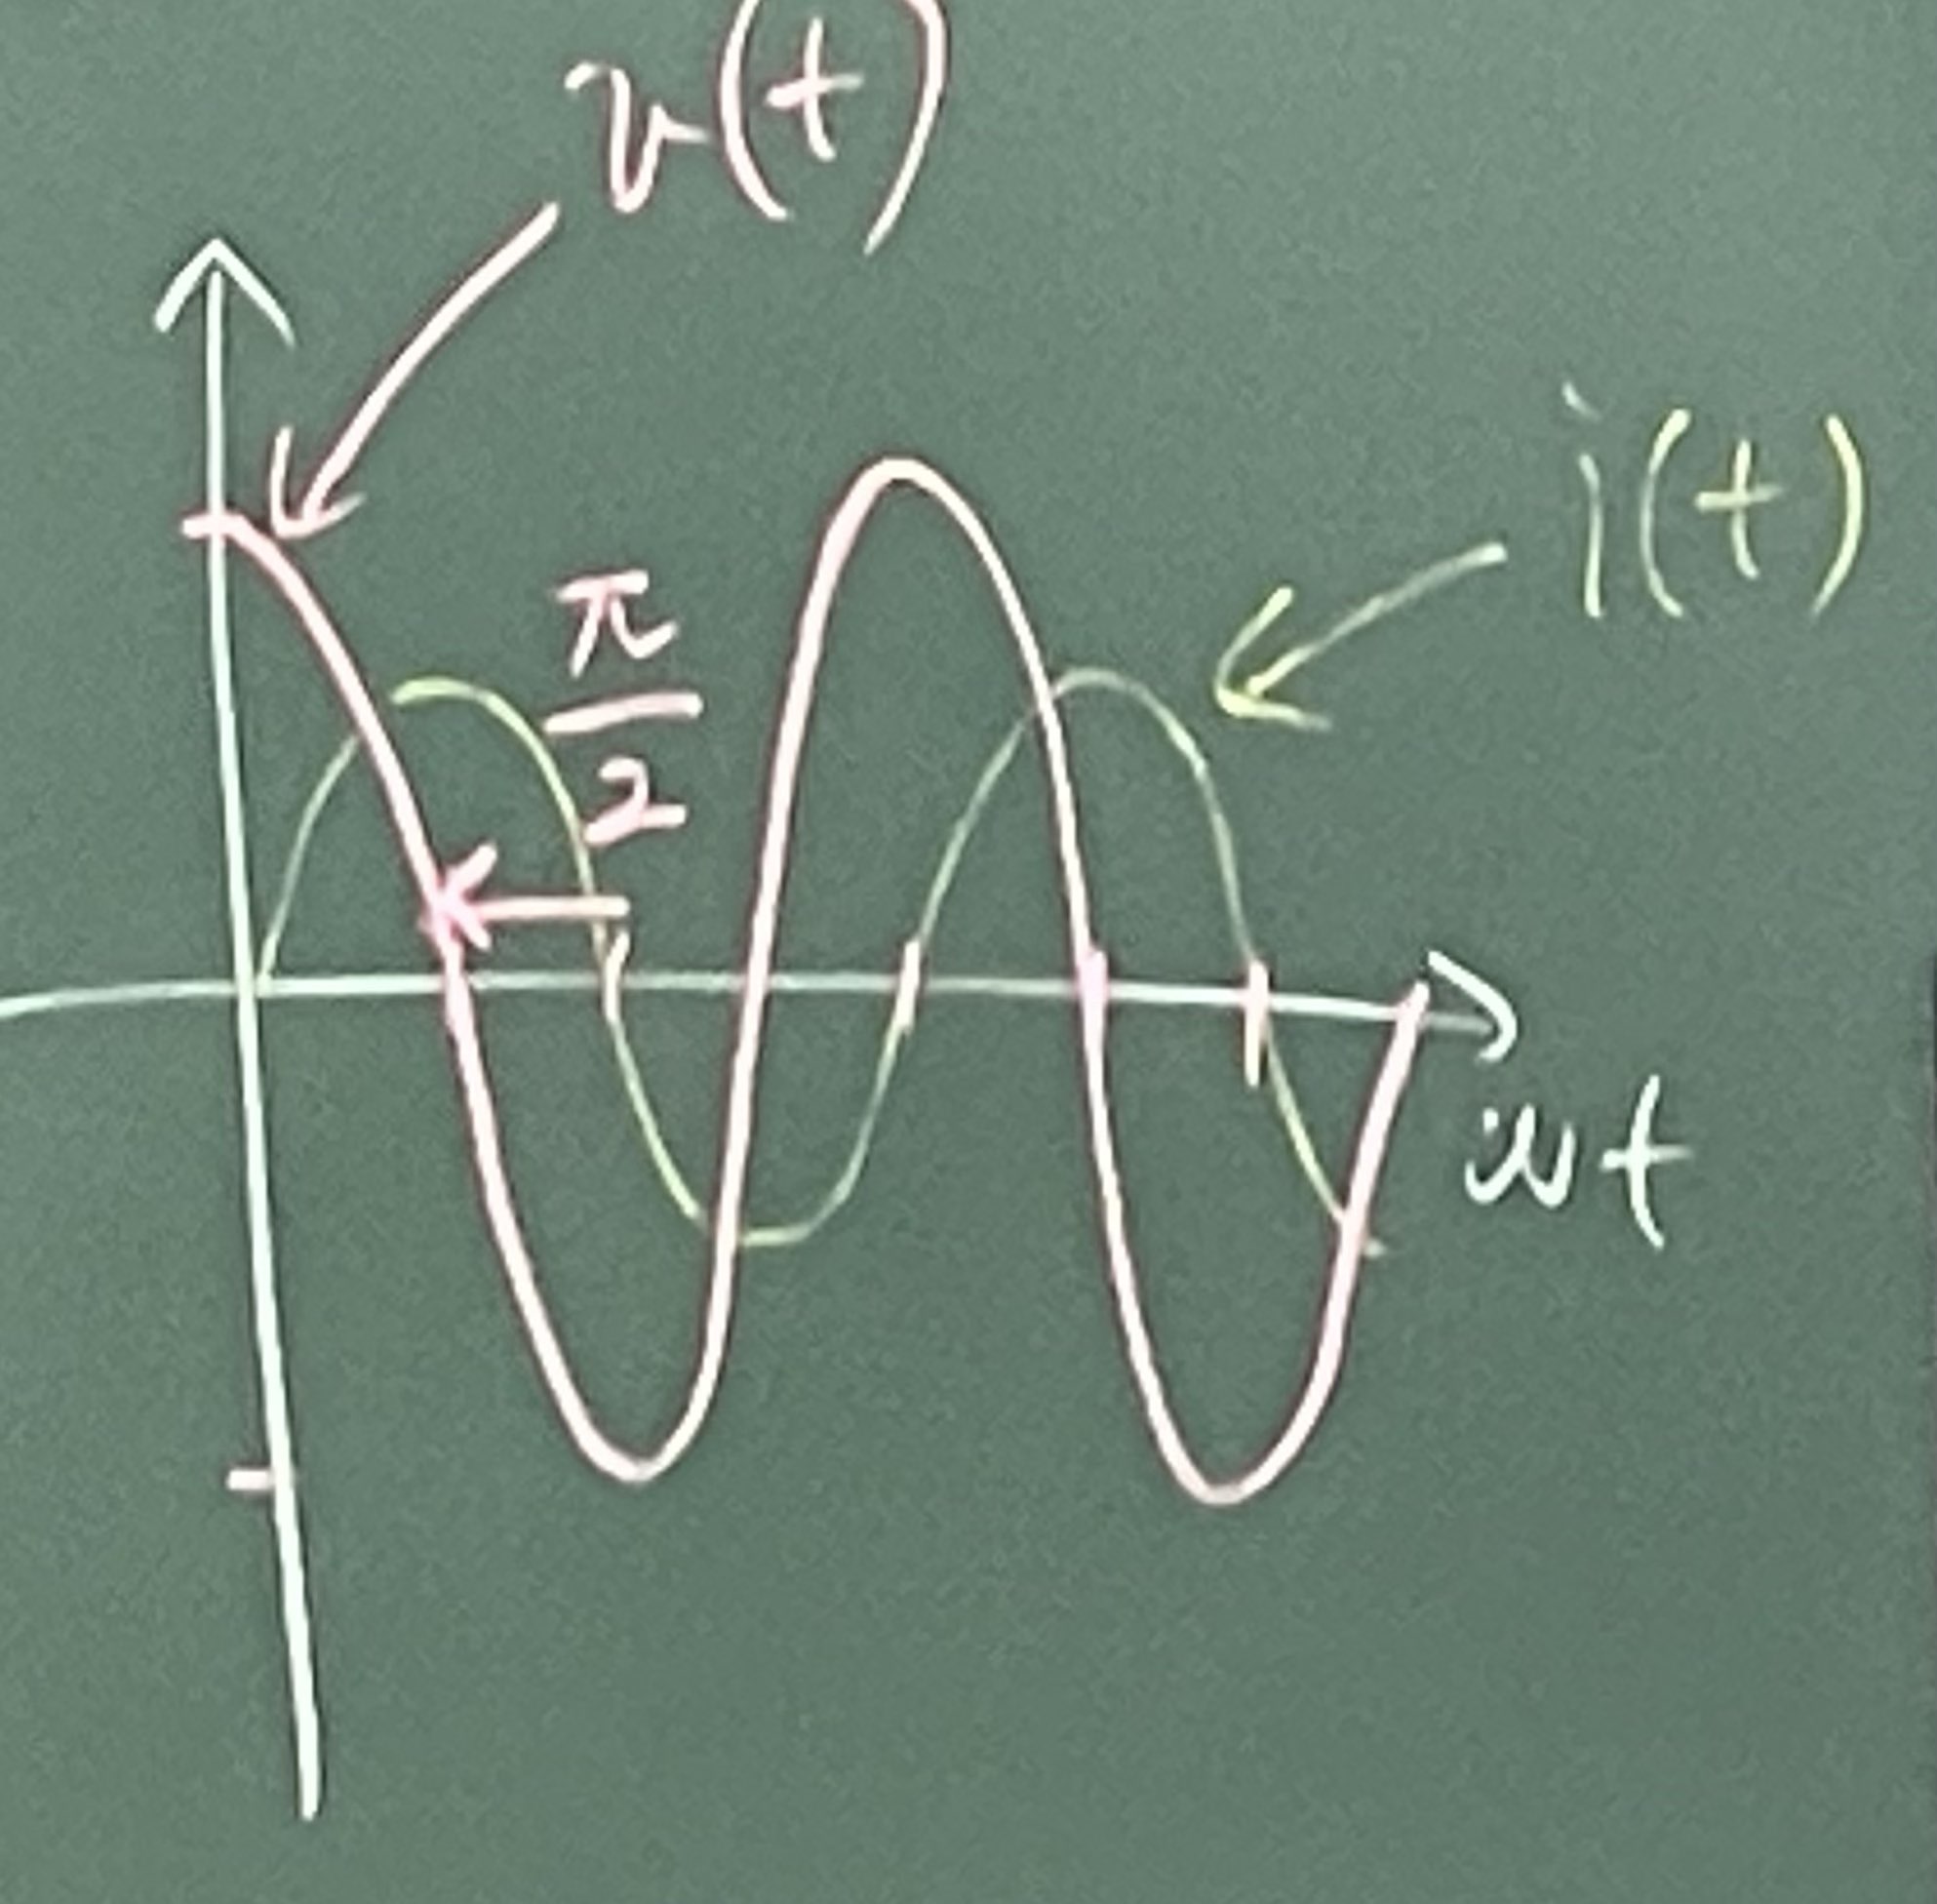 v(t)
i(t)
π
2
ωt